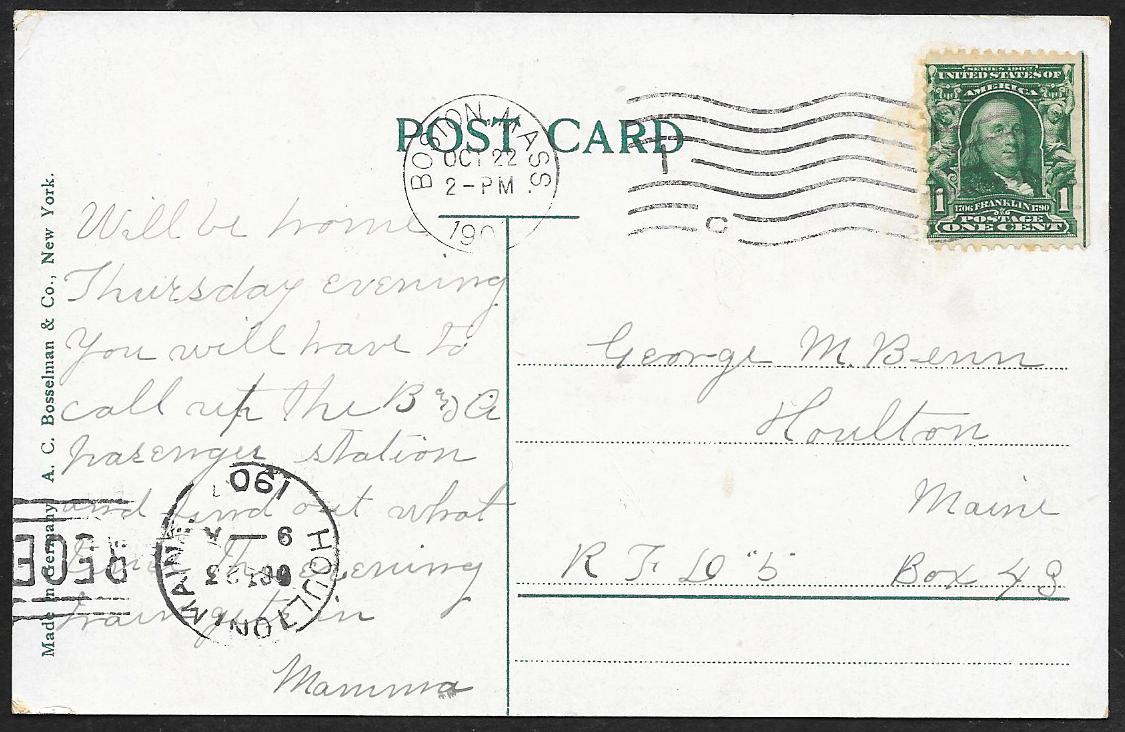 POST CARD
BOSTON, MASS.
OCT 22
2-PM
190
C
SERIES 1902
UNITED STATES OF
AMERICA
1 1706 FRANKLIN 1790 1
POSTAGE
ONE CENT
Made in Germany A. C. Bosselman & Co., New York.
Will be home
Thursday evening
You will have to
call up the B & A
passenger station
and find out what
time the evening
train gets in
Mamma
George M. Benn
Houlton
Maine
R F D 5 Box 48
HOULTON MAINE
OCT 23
9 — A
190